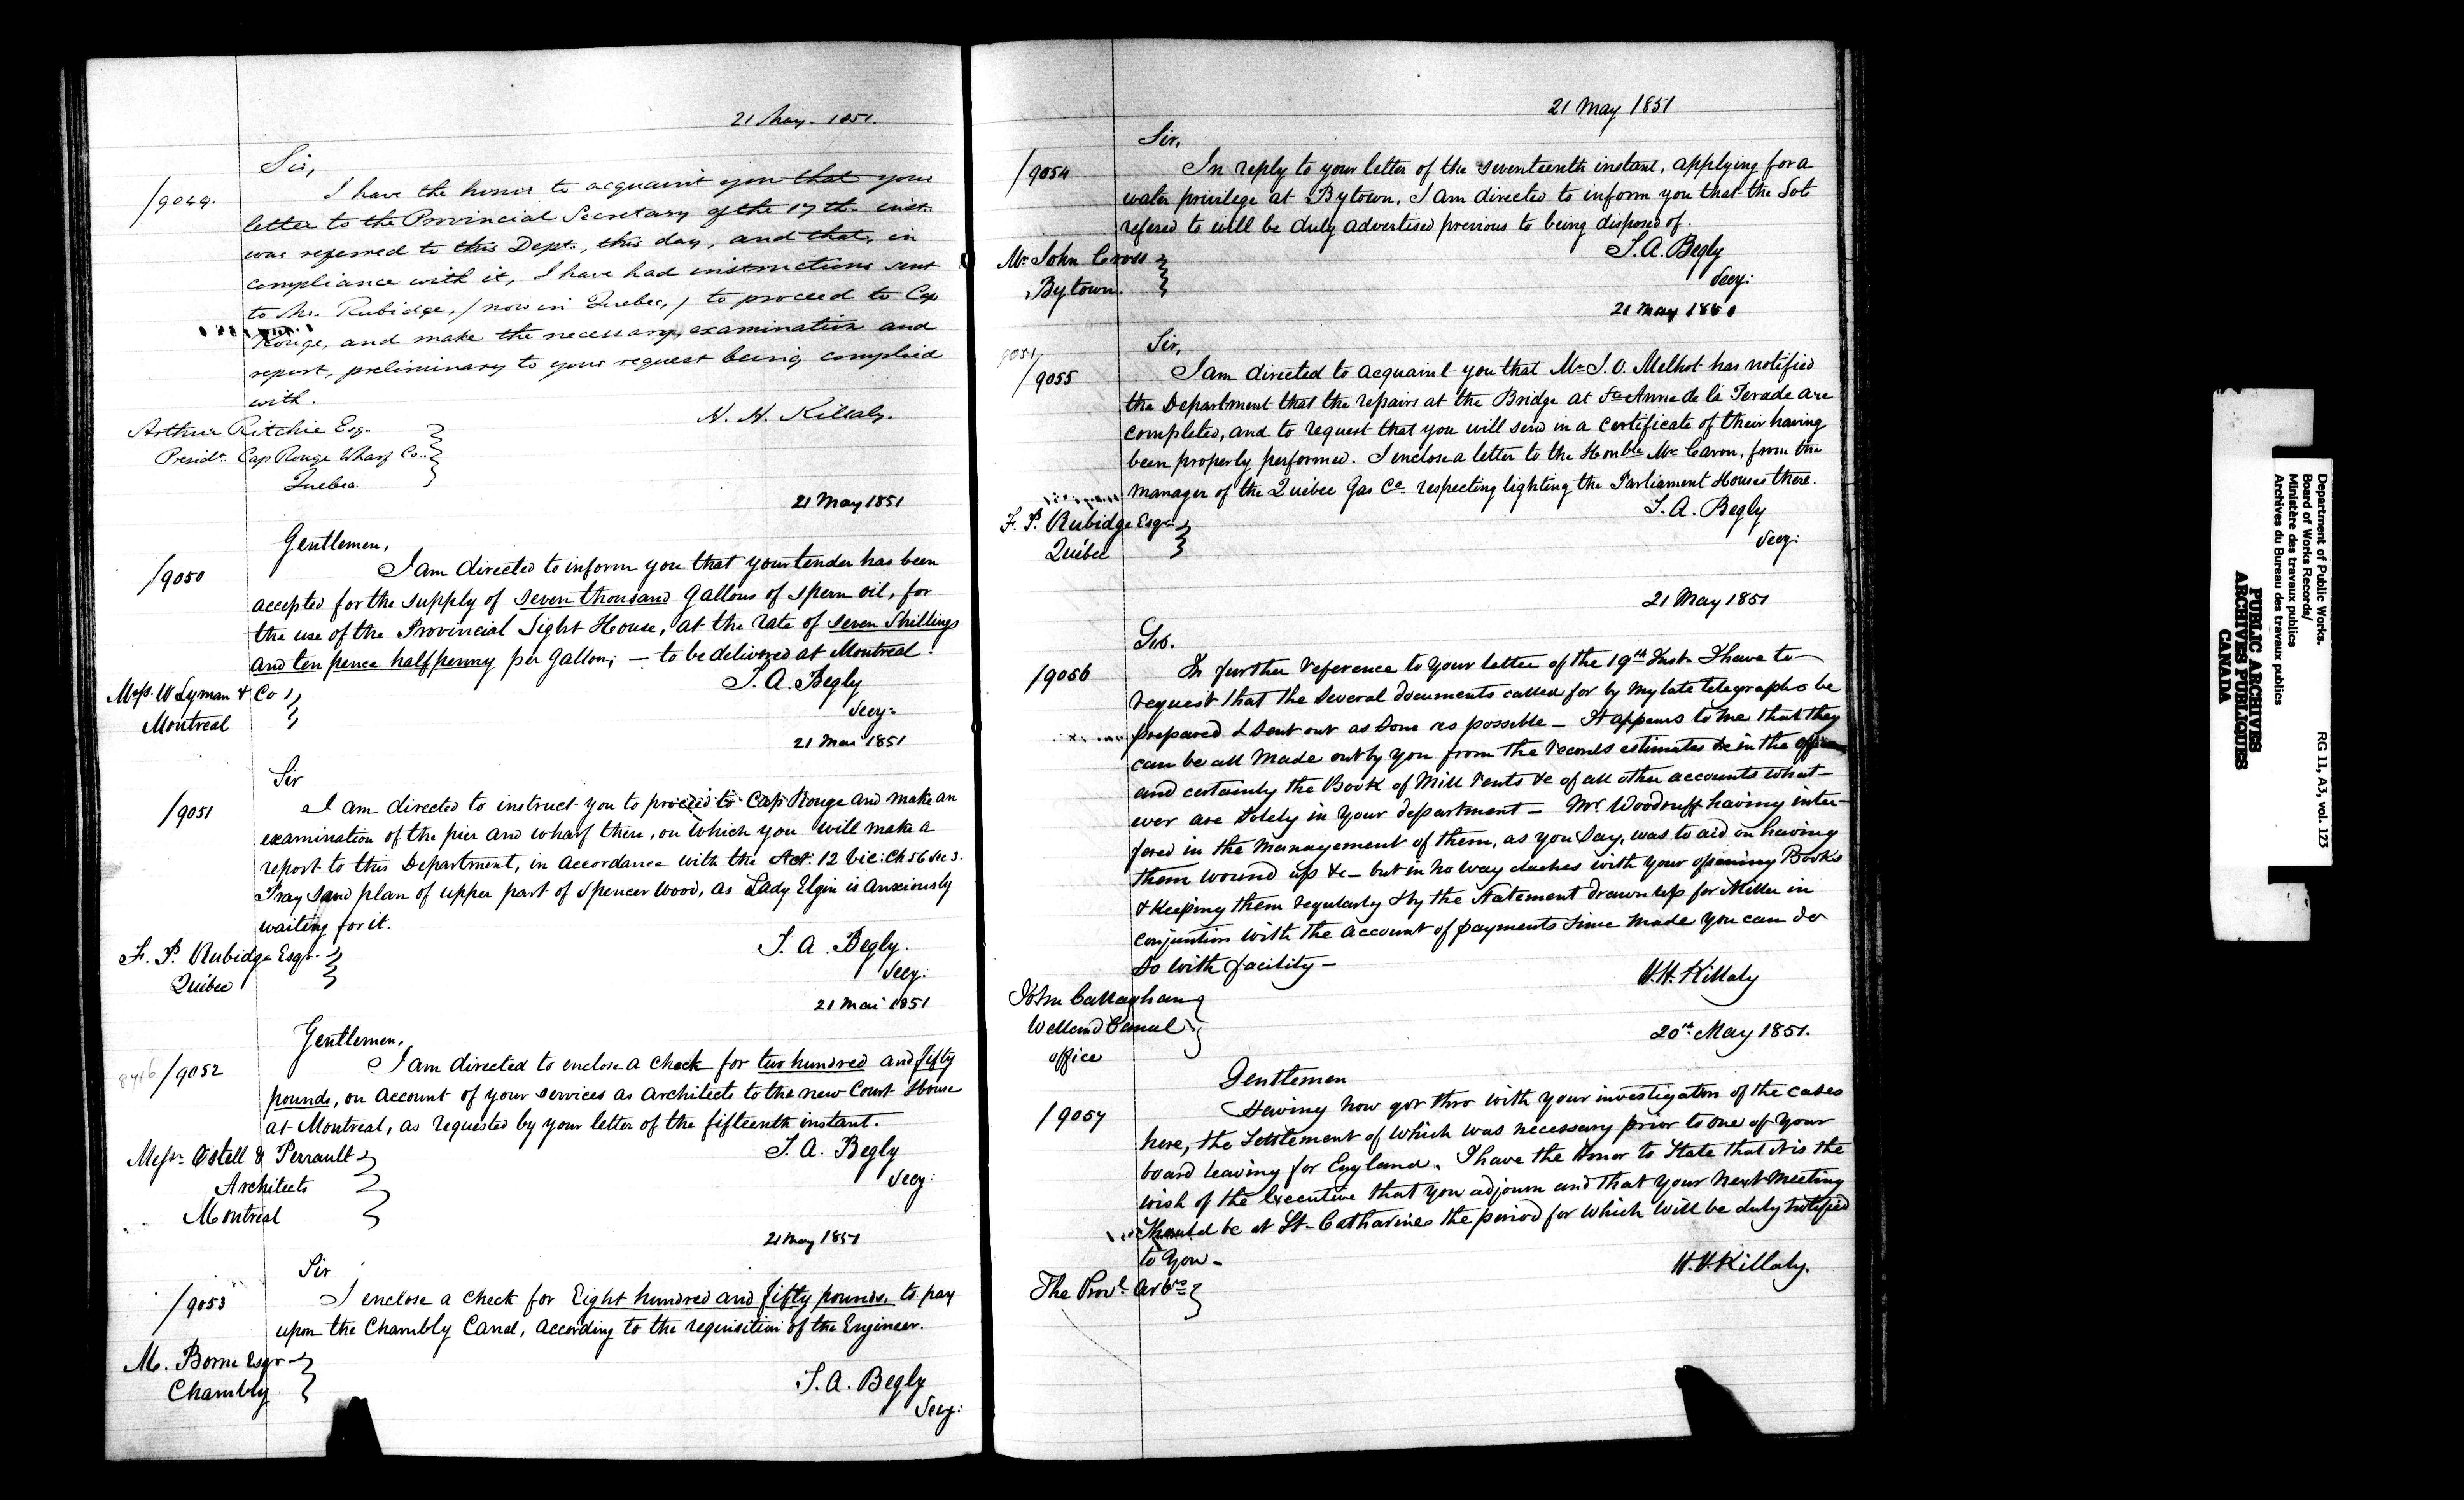 21 May. 1851.
Sir,
/9049.
I have the honor to acquaint you that your
letter to the Provincial Secretary of the 17th. inst.
was referred to this Dept., this day, and that, in
compliance with it, I have had instructions sent
to Mr. Rubidge, / now in Quebec, / to proceed to Cap
Rouge, and make the necessary examination and
report, preliminary to your request being complied
with.
H. H. Killaly.
Arthur Ritchie Esq.
Presidt. Cap Rouge Wharf Co..
Quebec.
21 May 1851
Gentlemen,
/9050
I am directed to inform you that your tender has been
accepted for the supply of seven thousand Gallons of sperm oil, for
the use of the Provincial Light House, at the rate of seven Shillings
and ten pence halfpenny per Gallon; — to be delivered at Montreal.
T. A. Begly
Secy:
Messrs. W Lyman & Co
Montreal
21 Mai 1851
Sir
/9051
I am directed to instruct you to proceed to Cap Rouge and make an
examination of the pier and wharf there, on which you will make a
report to this Department, in accordance with the Act: 12 Vic: Ch 56 Sec 3.
Pray send plan of upper part of Spencer Wood, as Lady Elgin is anxiously
waiting for it.
T. A. Begly.
Secy:
F. P. Rubidge Esqr.
Québec
21 Mai 1851
Gentlemen,
8946 /9052
I am directed to enclose a check for two hundred and fifty
pounds, on account of your services as Architects to the new Court House
at Montreal, as requested by your letter of the fifteenth instant.
T. A. Begly
Secy:
Messrs. Ostell & Perrault
Architects
Montreal
21 May 1851
Sir
/9053
I enclose a check for Eight hundred and fifty pounds, to pay
upon the Chambly Canal, according to the requisition of the Engineer.
M. Borne Esqr
Chambly
T. A. Begly
Secy:
21 May 1851
Sir,
/9054
In reply to your letter of the seventeenth instant, applying for a
water privilege at Bytown, I am directed to inform you that the Lot
refered to will be duly advertised previous to being disposed of.
T. A. Begly
Secy:
Mr. John Cross
Bytown.
21 May 1851
Sir,
9051/
/9055
I am directed to acquaint you that Mr. J. O. Melhot has notified
the Department that the repairs at the Bridge at Ste Anne de la Perade are
completed, and to request that you will send in a certificate of their having
been properly performed. I enclose a letter to the Honble Mr. Caron, from the
manager of the Québec Gas Co. respecting lighting the Parliament Houses there.
T. A. Begly
Secy:
F. P. Rubidge Esqr
Québec
21 May 1851
Sir.
/9056
In further reference to your letter of the 19th Inst. I have to
request that the several documents called for by my late telegraphs be
prepared & sent out as sone as possible — It appears to me that they
can be all made out by you from the records estimates &c in the office
and certainly the Book of Mill rents &c of all other accounts what-
ever are solely in your department — Mr. Woodruff having inter-
fered in the management of them, as you say, was to aid in having
them wound up &c — but in no way clashes with your opening Books
& keeping them regularly & by the Statement drawn up for Miller in
conjunction with the account of payments since made you can do
so with facility —
H. H. Killaly
John Callaghan
Welland Canal
office
20th May 1851.
Gentlemen
/9057
Having now got thro with your investigation of the cases
here, the Settlement of which was necessary prior to one of your
board leaving for England. I have the honor to State that it is the
wish of the Executive that you adjourn and that your next meeting
should be at St. Catharines the period for which will be duly notified
to you —
H. H. Killaly.
The Provl. Arbrs
Department of Public Works.
Board of Works Records/
Ministère des travaux publics
Archives du Bureau des travaux publics
RG 11, A3, vol. 123
PUBLIC ARCHIVES
ARCHIVES PUBLIQUES
CANADA